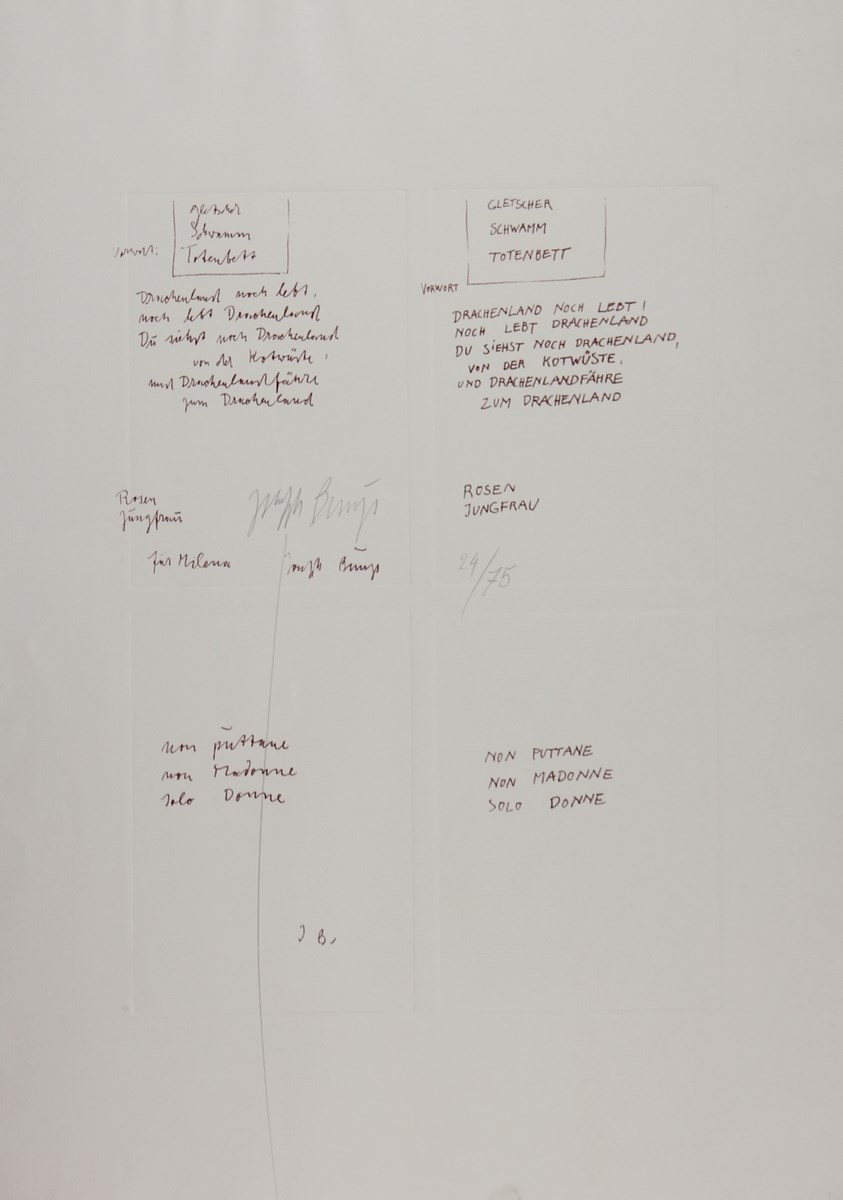 gletscher
Schwamm
Totenbett
Vorwort:
Drachenland noch lebt,
noch lebt Drachenland
Du siehst noch Drachenland
von der Kotwüste,
und Drachenlandfähre
zum Drachenland
Rosen
Jungfrau
Joseph Beuys
für Milena
Joseph Beuys
non puttane
non Madonne
solo Donne
J B.
GLETSCHER
SCHWAMM
TOTENBETT
VORWORT
DRACHENLAND NOCH LEBT!
NOCH LEBT DRACHENLAND
DU SIEHST NOCH DRACHENLAND,
VON DER KOTWÜSTE,
UND DRACHENLANDFÄHRE
ZUM DRACHENLAND
ROSEN
JUNGFRAU
29/75
NON PUTTANE
NON MADONNE
SOLO DONNE